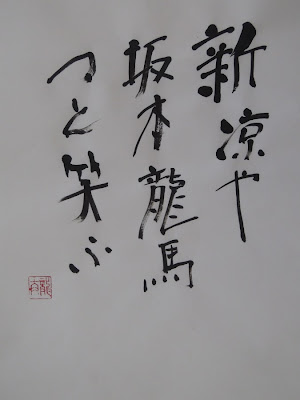 新涼や
坂本龍馬
つと笑ふ